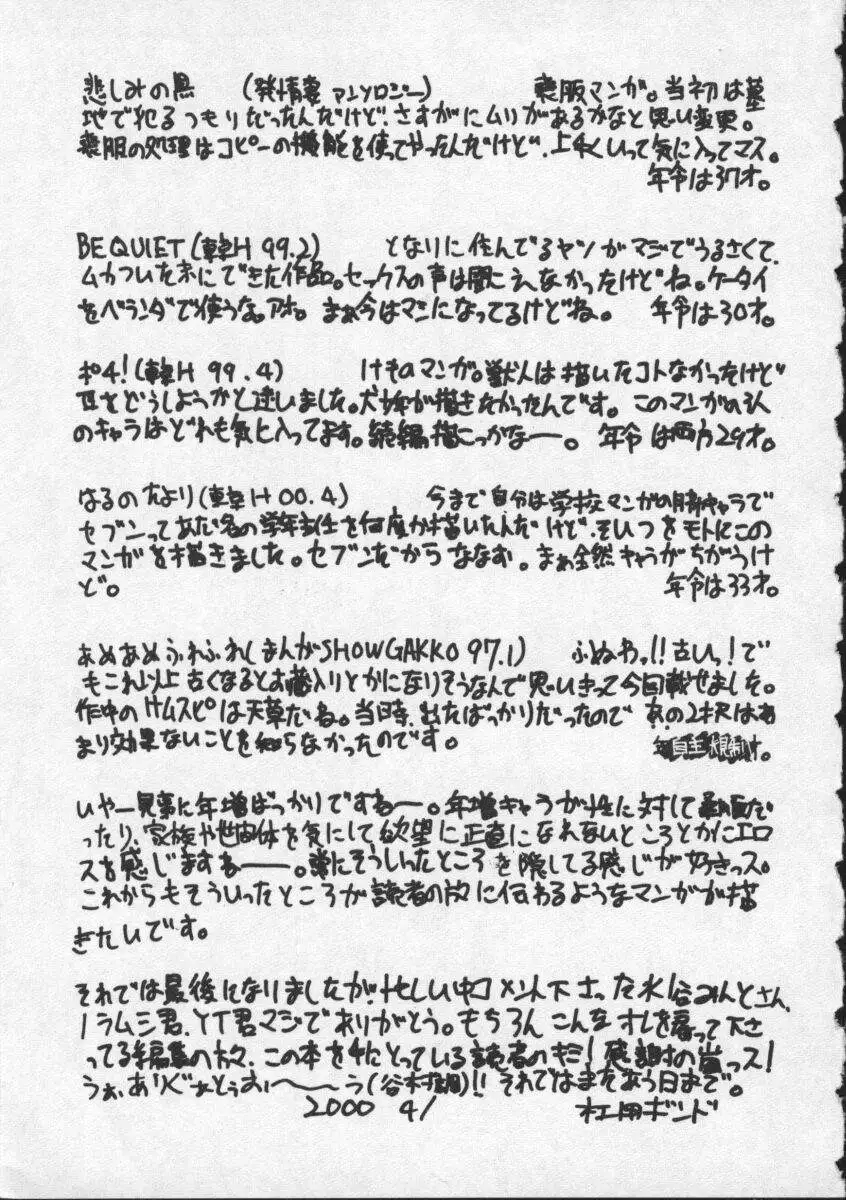 悲しみの黒 (発情妻アンソロジー) 喪服マンガ。当初は墓
地で犯るつもりだったんだけど、さすがにムリがあるかなと思い変更。
喪服の処理はコピーの機能を使ってやったんだけど、上手くいって気に入ってマス。
年令は37才。
BE QUIET (H 99.2) となりに住んでるヤツがマジでうるさくて、
ムカついた末にできた作品。セックスの声は聞こえなかったけどね。ケータイ
をベランダで使うな。アホ。まぁ今はマシになってるけどね。 年令は30才。
ポチ! (H 99.4) けものマンガ。獣人は描いたコトなかったけど
どうしようかと迷いました。犬が描きたかったんです。このマンガの3人
のキャラはどれも気に入ってます。続編描こっかなー。 年令は両方29才。
はるのたより (H 00.4) 今まで自分は学校マンガの脇キャラで
セブンってあだ名の学年主任を何度か描いたんだけど、そいつをモトにこの
マンガを描きました。セブンだからななお。まぁ全然キャラがちがうけ
ど。 年令は33才。
あめあめふれふれ (まんがSHOWGAKKO 97.1) ふぬわっ!!古いっ!で
もこれ以上古くなるとお蔵入りとかになりそうなんで思いきって今回載せました。
作中のサムスピは天草だね。当時、出たばっかりだったので あの2択はあ
まり効果ないことを知らなかったのです。 年自主規制才。
いやー見事に年増ばっかりですねー。年増キャラが性に対して だ
ったり、家族や世間体を気にして欲望に正直になれないところとかにエロ
スを感じますねー。常にそういったところを隠してる感じが好きっス。
これからもそういったところが読者の方々に伝わるようなマンガが描
きたいです。
それでは最後になりましたが、忙しい中コメント下さった水谷みんとさん、
ノラムシ君、YT君マジでありがとう。もちろんこんなオレを雇って下さ
ってる編集の方々、この本を手にとっている読者のキミ!感謝の嵐っス!
うぉ、ありがとぅおぉ〜う(谷村)!! それではまたあう日まで。
2000 4/ 杠用ボンド